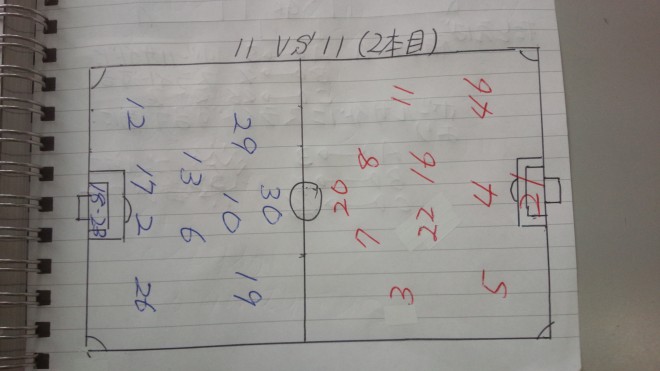 11 VS 11 (2本目)
30
29 10 19
13 6
12 17 2 26
20
8 7
11 16 22 3
4 5